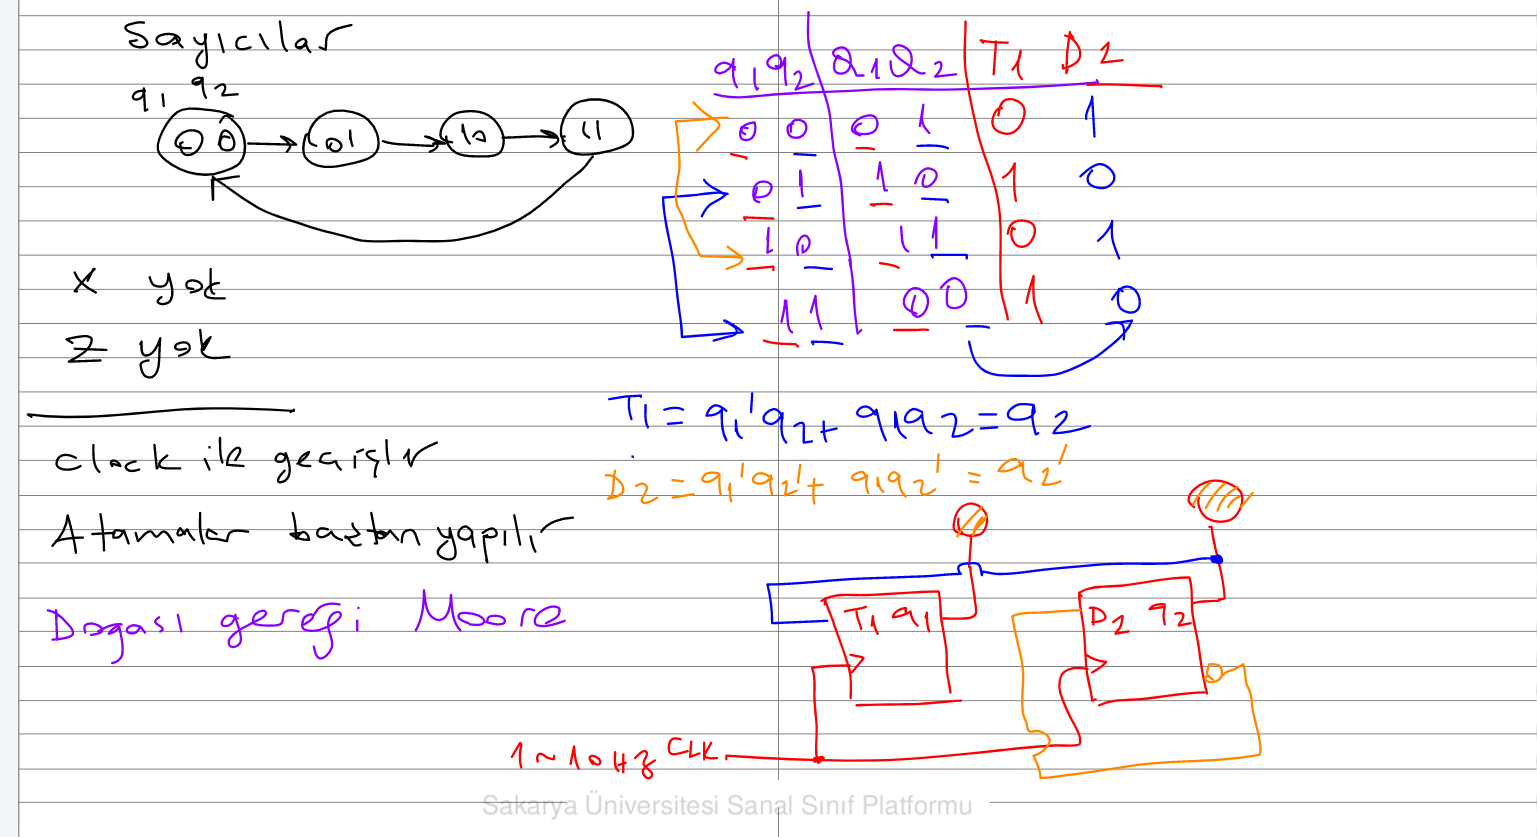 Sayıcılar
q1 q2
00 01 10 11
X yok
Z yok
clock ile geçişlr
Atamalar baştan yapılır
Doğası gereği Moore
q1 q2 Q1 Q2 T1 D2
0 0 0 1 0 1
0 1 1 0 1 0
1 0 1 1 0 1
1 1 0 0 1 0
T1 = q1'q2 + q1q2 = q2
D2 = q1'q2' + q1q2' = q2'
T1 q1 D2 q2
1~10Hz CLK
Sakarya Üniversitesi Sanal Sınıf Platformu